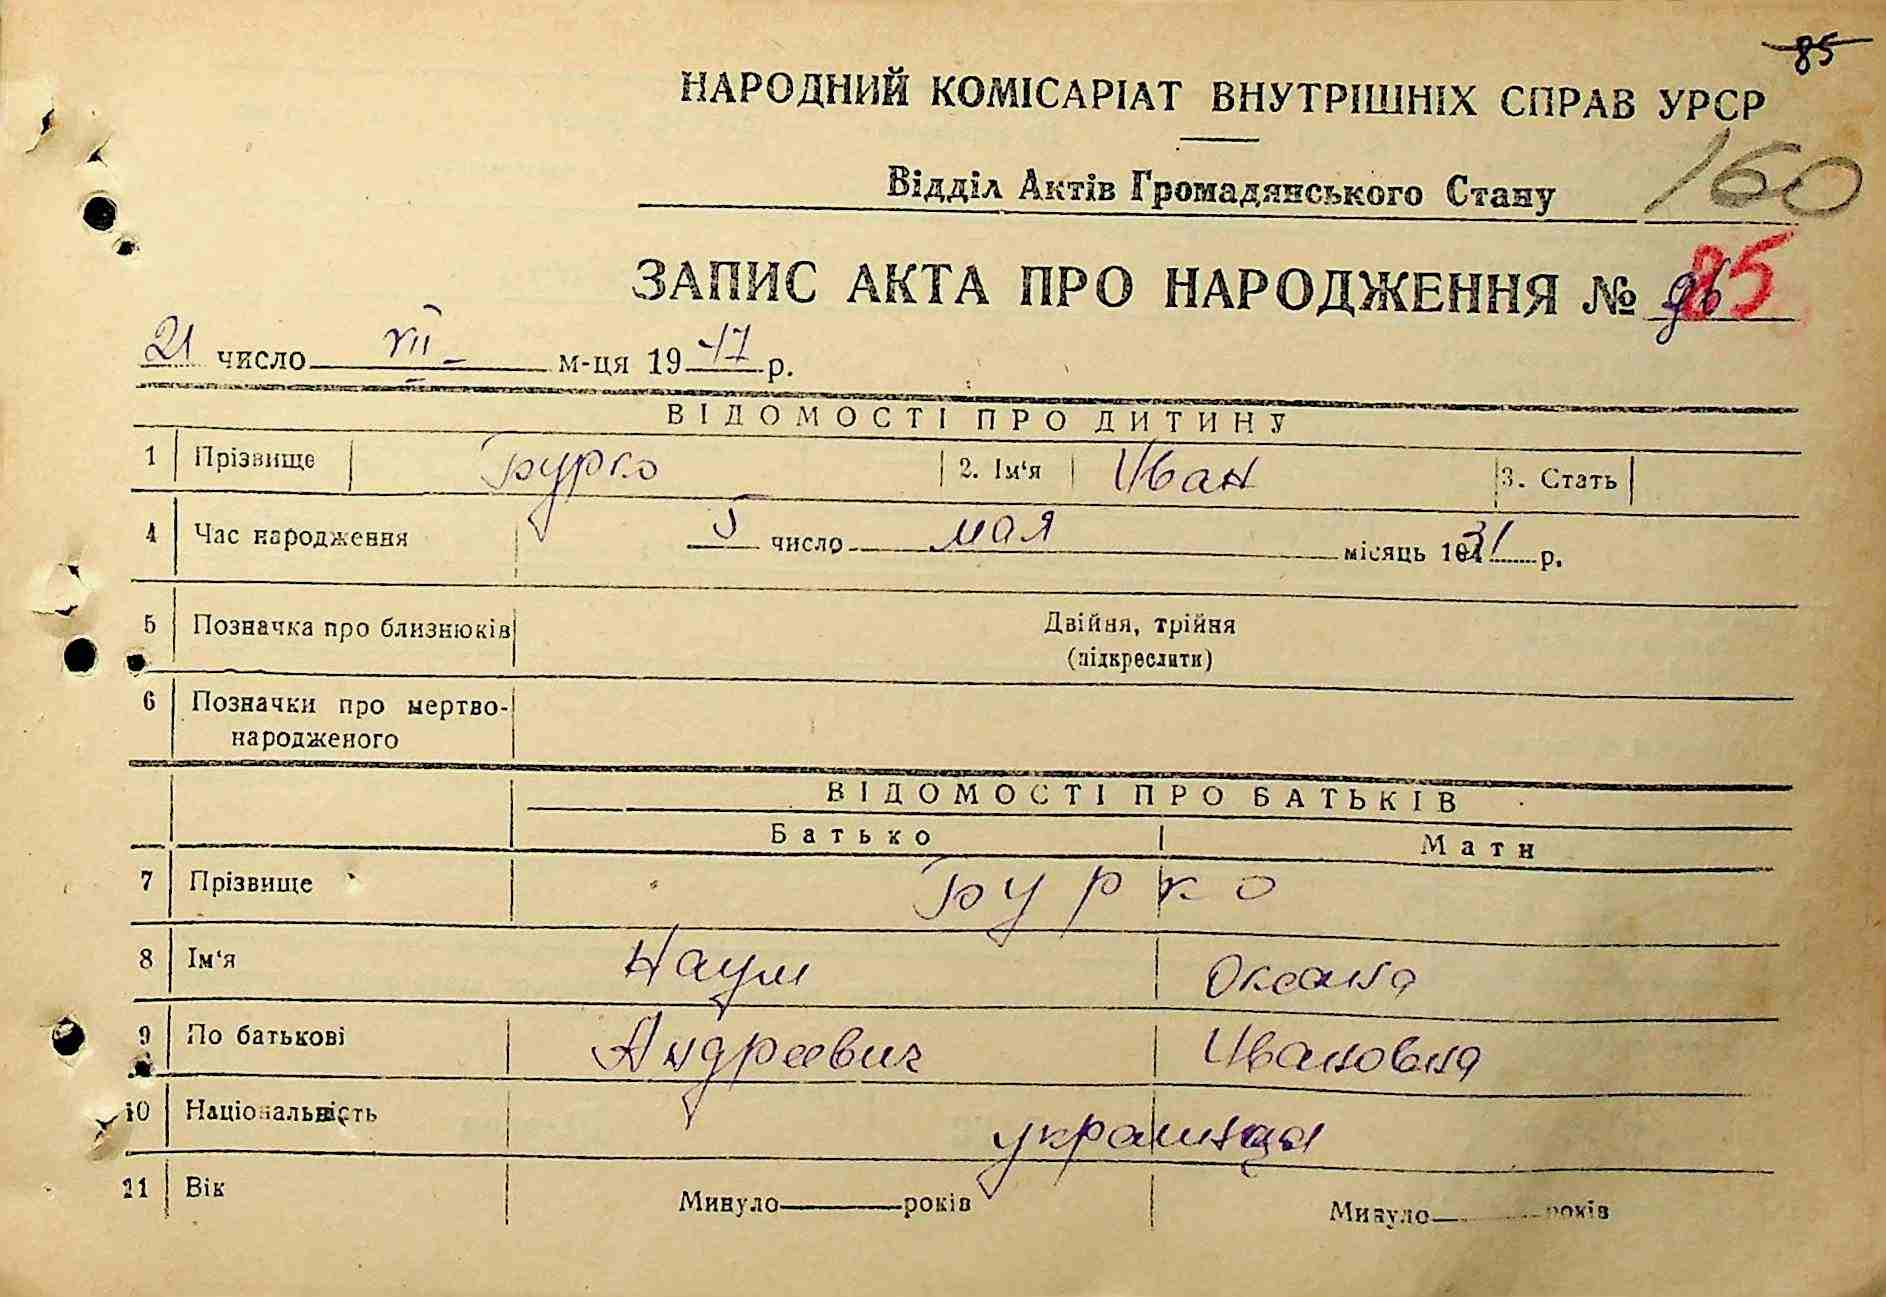 85
НАРОДНИЙ КОМІСАРІАТ ВНУТРІШНІХ СПРАВ УРСР
160
Відділ Актів Громадянського Стану
ЗАПИС АКТА ПРО НАРОДЖЕННЯ № 85
21 число VII м-ця 1947 р.
ВІДОМОСТІ ПРО ДИТИНУ
1 Прізвище Бурко 2. Ім'я Иван 3. Стать
4 Час народження 5 число мая місяць 1931 р.
5 Позначка про близнюків Двійня, трійня
(підкреслити)
6 Позначки про мертво-
народженого
ВІДОМОСТІ ПРО БАТЬКІВ
Батько Мати
7 Прізвище Бурко
8 Ім'я Наум Оксана
9 По батькові Андреевич Ивановна
10 Національність украинцы
11 Вік Минуло років Минуло років